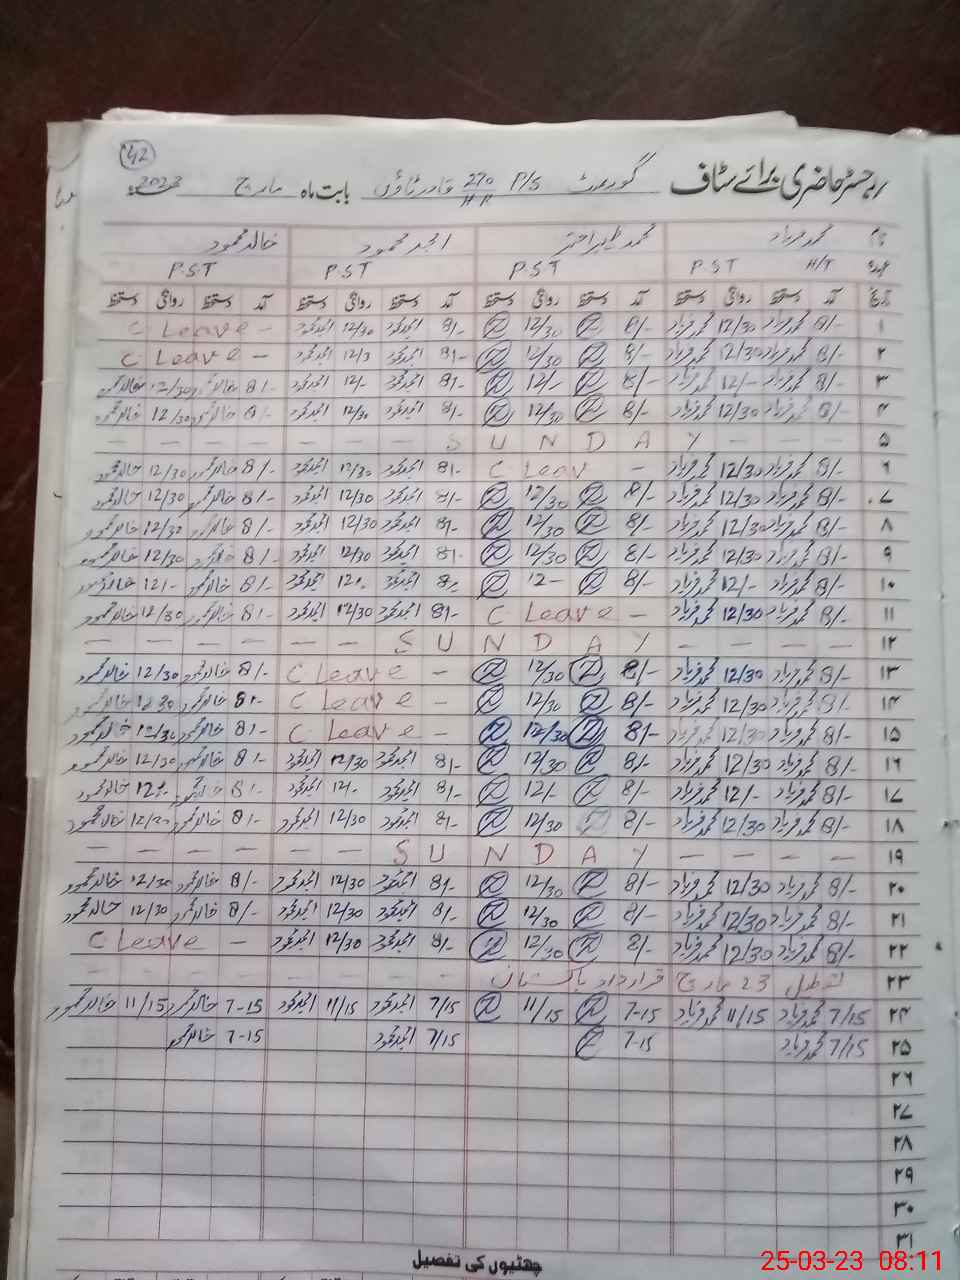 42
رجسٹر حاضری برائے سٹاف گورنمنٹ P/S 270/HR قادر ٹاؤن بابت ماہ مارچ 2023
نام محمد فرہاد محمد طاہر اختر امجد محمود خالد محمود
عہدہ H/T PST PST PST PST
تاریخ آمد دستخط روانگی دستخط آمد دستخط روانگی دستخط آمد دستخط روانگی دستخط آمد دستخط روانگی دستخط
۱ 8/- محمد فرہاد 12/30 محمد فرہاد 8/- 12/30 8/- امجد محمود 12/30 امجد محمود C Leave -
۲ 8/- محمد فرہاد 12/30 محمد فرہاد 8/- 12/30 8/- امجد محمود 12/3 امجد محمود C Leave -
۳ 8/- محمد فرہاد 12/- محمد فرہاد 8/- 12/- 8/- امجد محمود 12/- امجد محمود 8/- خالد محمود 12/30 خالد محمود
۴ 8/- محمد فرہاد 12/30 محمد فرہاد 8/- 12/30 8/- امجد محمود 12/30 امجد محمود 8/- خالد محمود 12/30 خالد محمود
۵ SUNDAY
۶ 8/- محمد فرہاد 12/30 محمد فرہاد C Leav - 8/- امجد محمود 12/30 امجد محمود 8/- خالد محمود 12/30 خالد محمود
۷ 8/- محمد فرہاد 12/30 محمد فرہاد 8/- 12/30 8/- امجد محمود 12/30 امجد محمود 8/- خالد محمود 12/30 خالد محمود
۸ 8/- محمد فرہاد 12/30 محمد فرہاد 8/- 12/30 8/- امجد محمود 12/30 امجد محمود 8/- خالد محمود 12/30 خالد محمود
۹ 8/- محمد فرہاد 12/30 محمد فرہاد 8/- 12/30 8/- امجد محمود 12/30 امجد محمود 8/- خالد محمود 12/30 خالد محمود
۱۰ 8/- محمد فرہاد 12/- محمد فرہاد 8/- 12- 8/- امجد محمود 12/- امجد محمود 8/- خالد محمود 12/- خالد محمود
۱۱ 8/- محمد فرہاد 12/30 محمد فرہاد C Leave - 8/- امجد محمود 12/30 امجد محمود 8/- خالد محمود 12/30 خالد محمود
۱۲ SUNDAY
۱۳ 8/- محمد فرہاد 12/30 محمد فرہاد 8/- 12/30 C Leave - 8/- خالد محمود 12/30 خالد محمود
۱۴ 8/- محمد فرہاد 12/30 محمد فرہاد 8/- 12/30 C Leave - 8/- خالد محمود 12/30 خالد محمود
۱۵ 8/- محمد فرہاد 12/30 محمد فرہاد 8/- 12/30 C Leave - 8/- خالد محمود 12/30 خالد محمود
۱۶ 8/- محمد فرہاد 12/30 محمد فرہاد 8/- 12/30 8/- امجد محمود 12/30 امجد محمود 8/- خالد محمود 12/30 خالد محمود
۱۷ 8/- محمد فرہاد 12/- محمد فرہاد 8/- 12/- 8/- امجد محمود 12/- امجد محمود 8/- خالد محمود 12/- خالد محمود
۱۸ 8/- محمد فرہاد 12/30 محمد فرہاد 8/- 12/30 8/- امجد محمود 12/30 امجد محمود 8/- خالد محمود 12/30 خالد محمود
۱۹ SUNDAY
۲۰ 8/- محمد فرہاد 12/30 محمد فرہاد 8/- 12/30 8/- امجد محمود 12/30 امجد محمود 8/- خالد محمود 12/30 خالد محمود
۲۱ 8/- محمد فرہاد 12/30 محمد فرہاد 8/- 12/30 8/- امجد محمود 12/30 امجد محمود 8/- خالد محمود 12/30 خالد محمود
۲۲ 8/- محمد فرہاد 12/30 محمد فرہاد 8/- 12/30 8/- امجد محمود 12/30 امجد محمود C Leave -
۲۳ تعطیل 23 مارچ قرارداد پاکستان
۲۴ 7/15 محمد فرہاد 11/15 محمد فرہاد 7-15 11/15 7/15 امجد محمود 11/15 امجد محمود 7-15 خالد محمود 11/15 خالد محمود
۲۵ 7/15 محمد فرہاد 7-15 7/15 امجد محمود 7-15 خالد محمود
۲۶
۲۷
۲۸
۲۹
۳۰
۳۱
چھٹیوں کی تفصیل
25-03-23 08:11